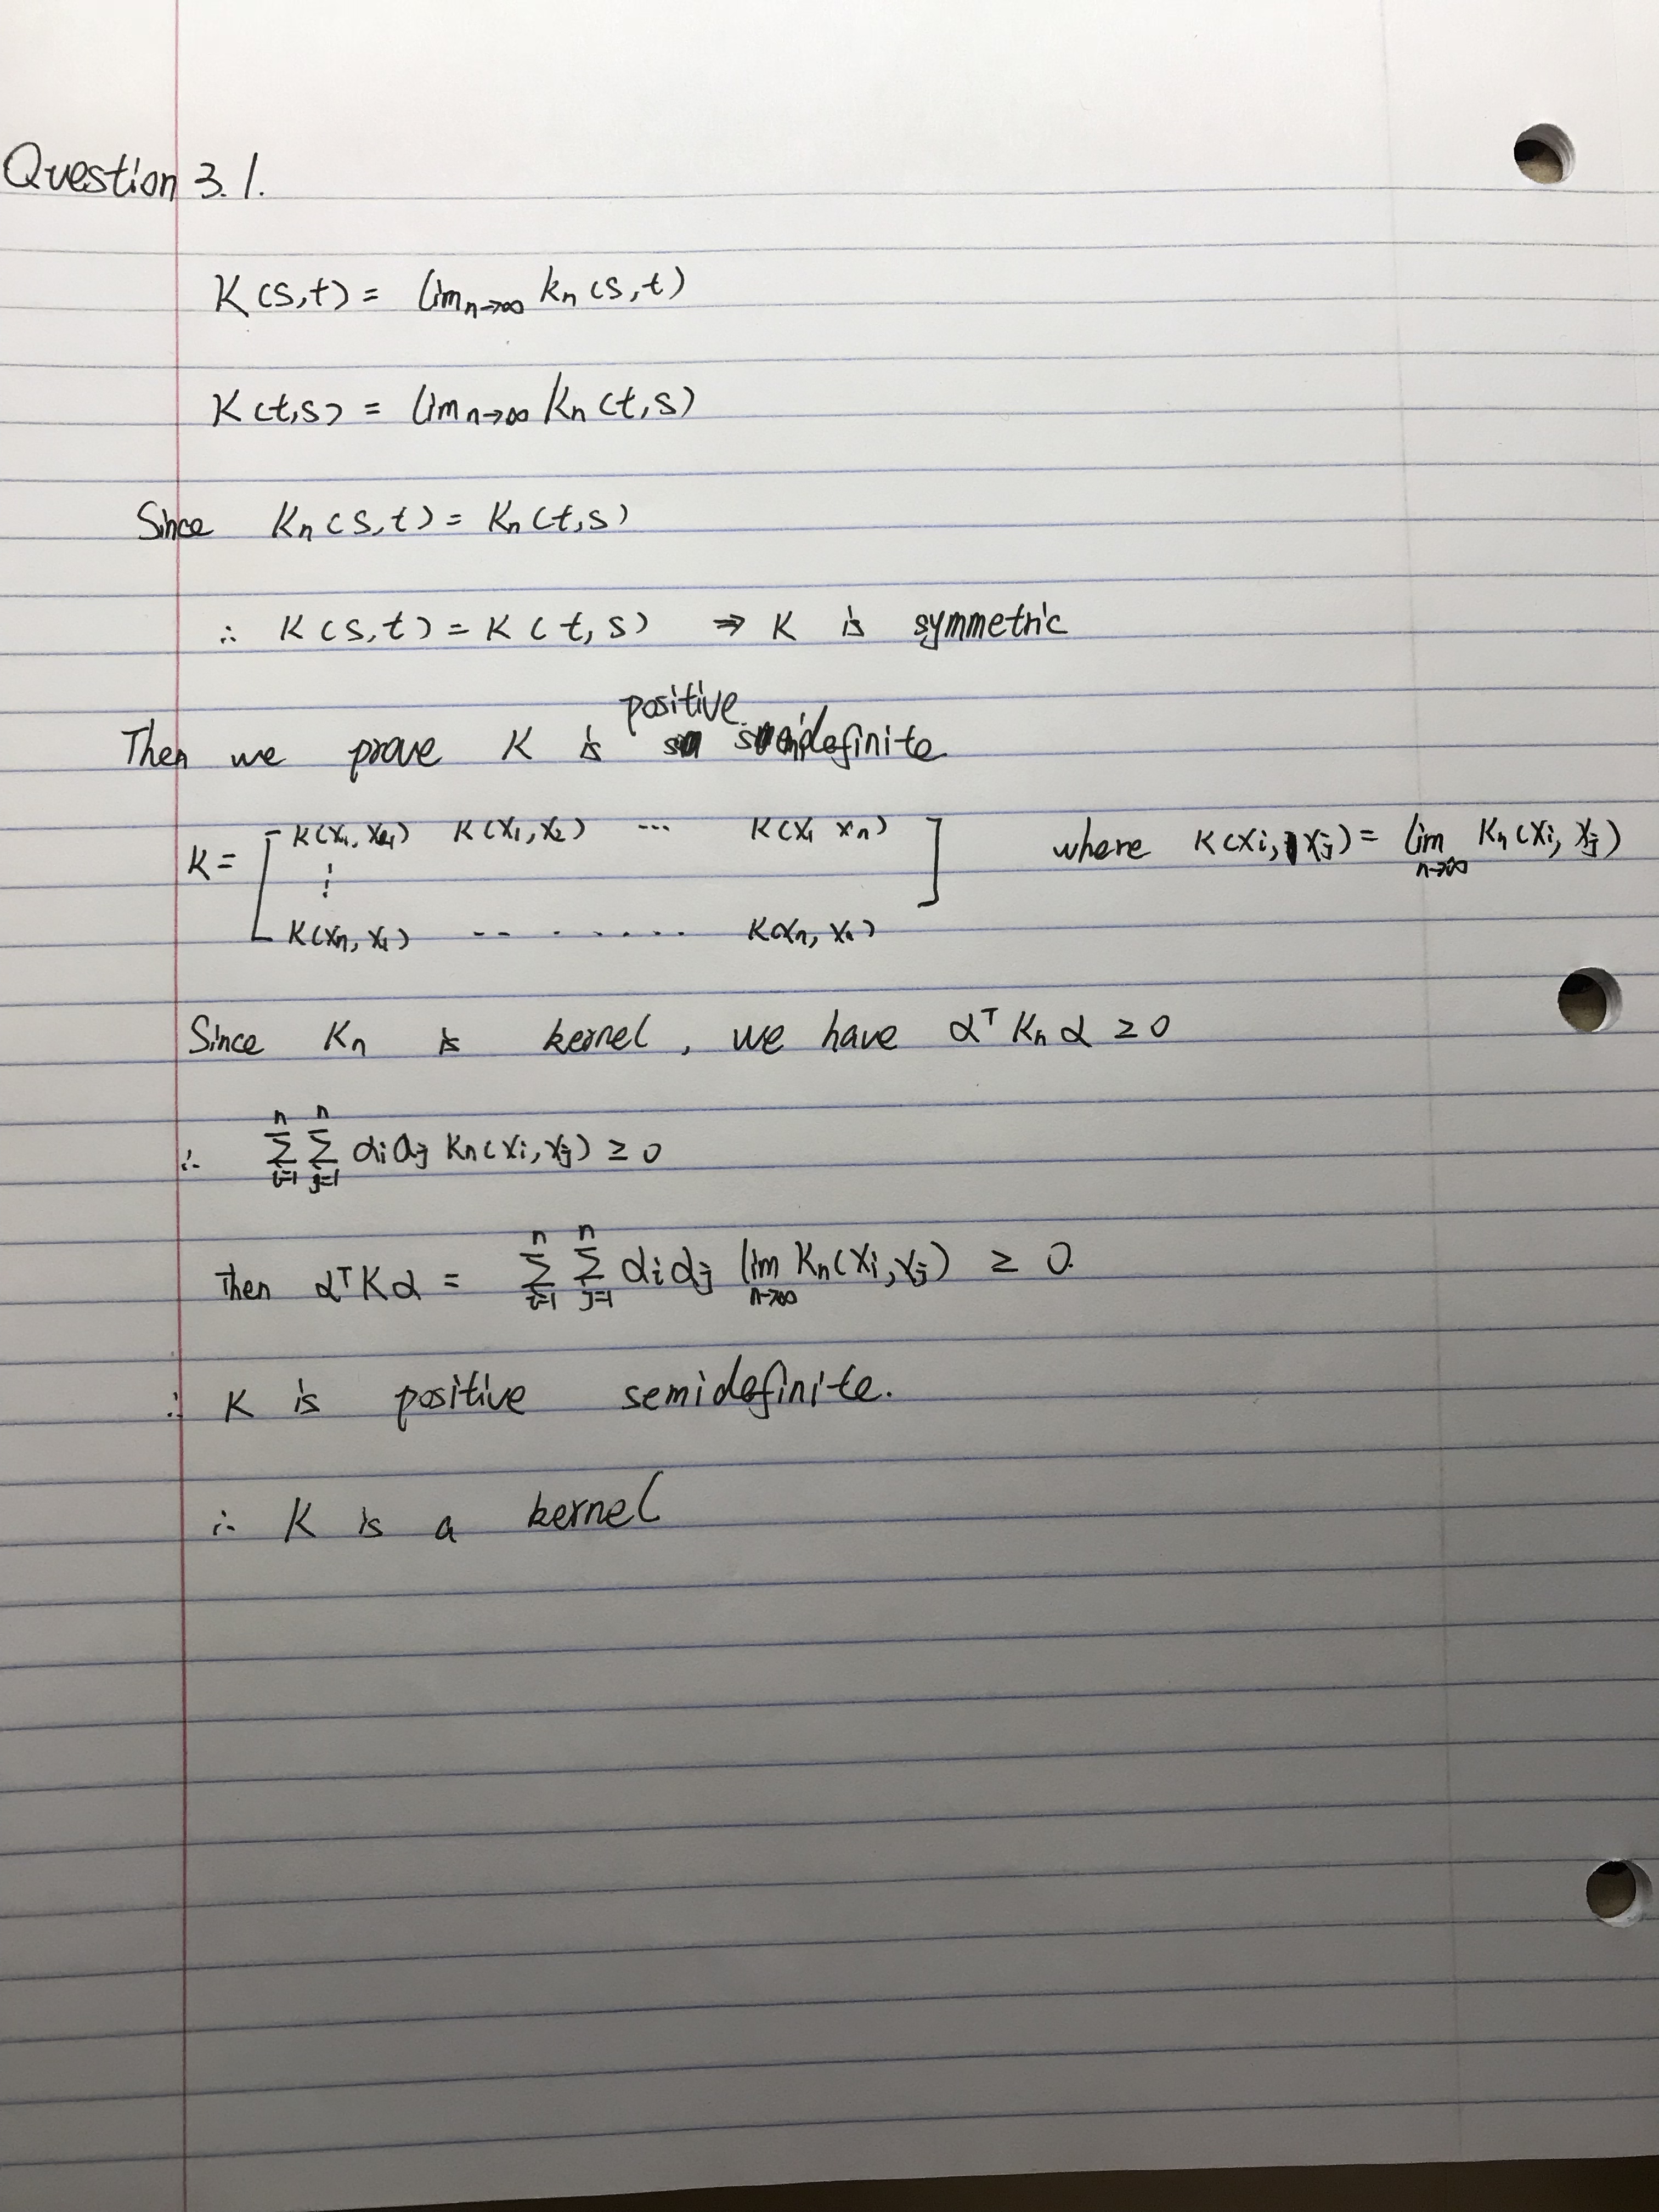 Question 3.1.
K(s,t) = lim n→∞ kn(s,t)
K(t,s) = lim n→∞ Kn(t,s)
Since Kn(s,t) = Kn(t,s)
∴ K(s,t) = K(t,s) ⇒ K is symmetric
Then we prove K is positive semidefinite
K = [ K(x1, x1) K(x1, x2) ... K(x1 xn) ] where K(xi, xj) = lim n→∞ Kn(xi, xj)
⋮
K(xn, x1) -- . . . . . . K(xn, xn)
Since Kn is kernel, we have αᵀ Kn α ≥ 0
∴ n Σ i=1 n Σ j=1 αi αj Kn(xi, xj) ≥ 0
Then αᵀKα = n Σ i=1 n Σ j=1 αi αj lim n→∞ Kn(xi, xj) ≥ 0.
∴ K is positive semidefinite.
∴ K is a kernel